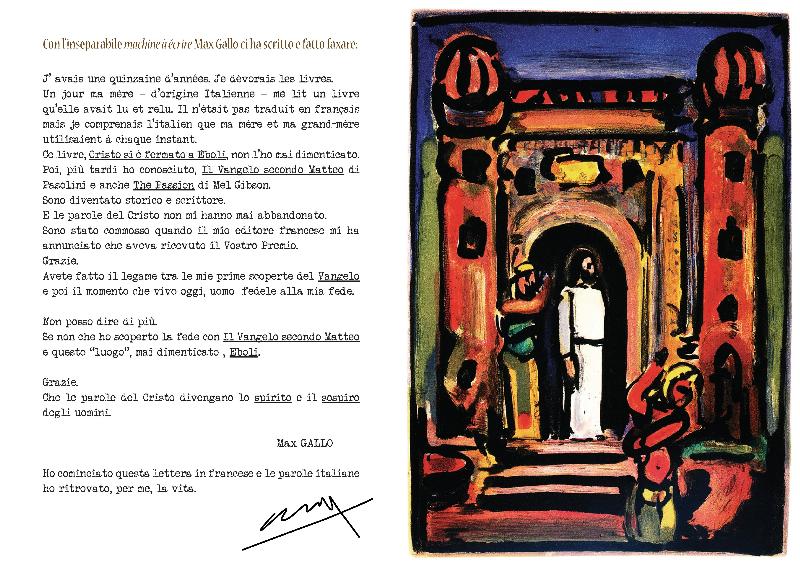 Con l'inseparabile machine à écrire Max Gallo ci ha scritto e fatto faxare:
J' avais une quinzaine d'années. Je dévorais les livres.
Un jour ma mère – d'origine Italienne – me lit un livre
qu'elle avait lu et relu. Il n'était pas traduit en français
mais je comprenais l'italien que ma mère et ma grand-mère
utilisaient à chaque instant.
Ce livre, Cristo si è fermato a Eboli, non l'ho mai dimenticato.
Poi, più tardi ho conosciuto, Il Vangelo secondo Matteo di
Pasolini e anche The Passion di Mel Gibson.
Sono diventato storico e scrittore.
E le parole del Cristo non mi hanno mai abbandonato.
Sono stato commosso quando il mio editore francese mi ha
annunciato che aveva ricevuto il Vostro Premio.
Grazie.
Avete fatto il legame tra le mie prime scoperte del Vangelo
e poi il momento che vivo oggi, uomo fedele alla mia fede.
Non posso dire di più.
Se non che ho scoperto la fede con Il Vangelo secondo Matteo
e questo "luogo", mai dimenticato , Eboli.
Grazie.
Che le parole del Cristo divengano lo spirito e il sospiro
degli uomini.
Max GALLO
Ho cominciato questa lettera in francese e le parole italiane
ho ritrovato, per me, la vita.